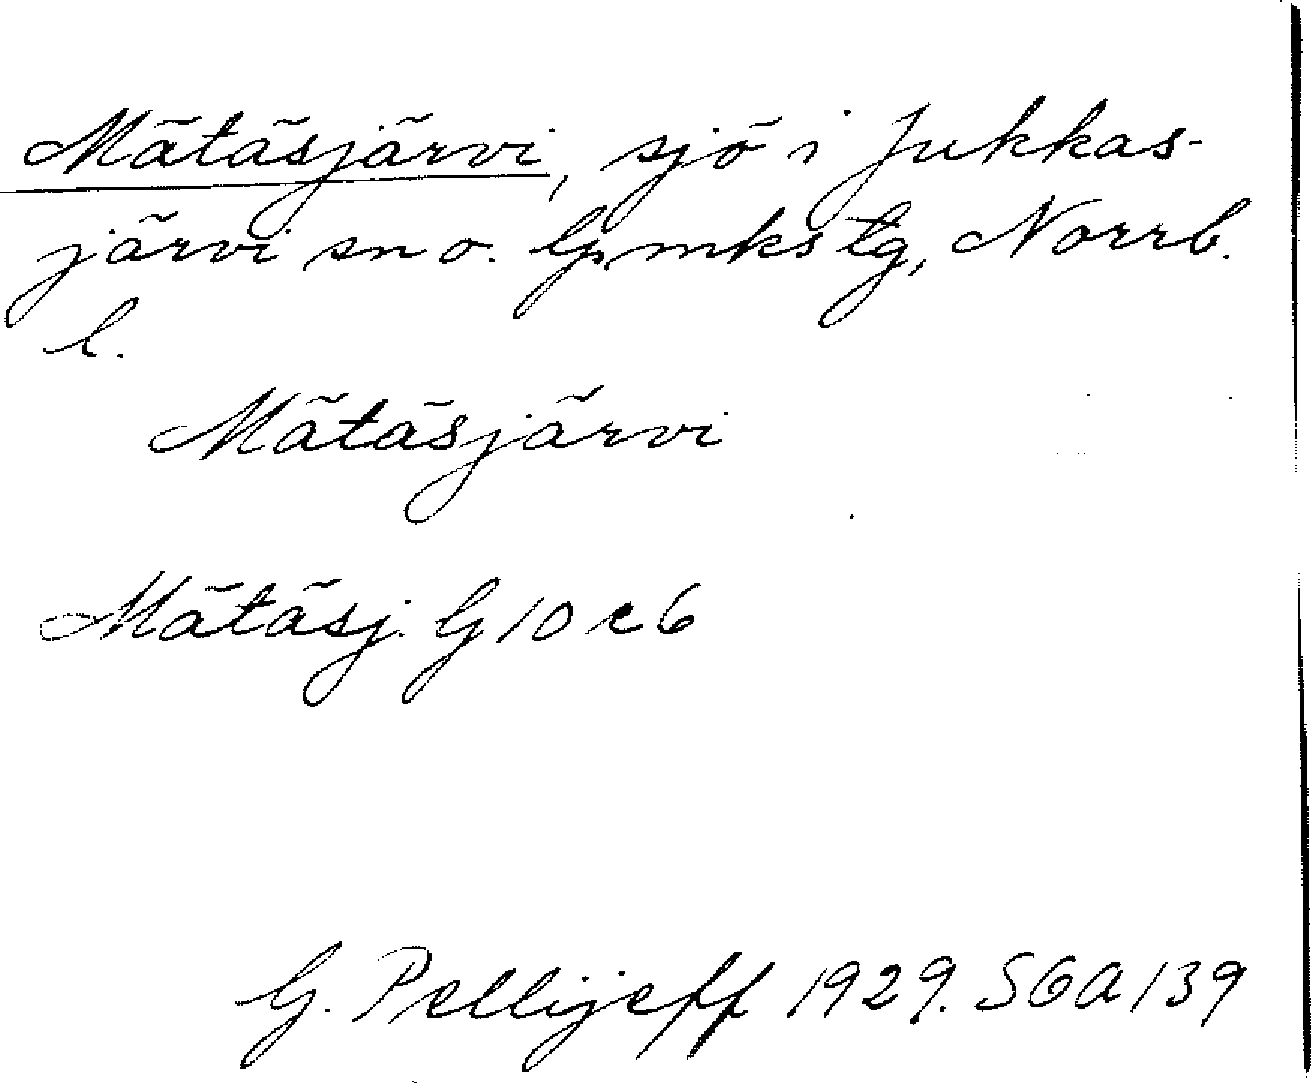 Mätäsjärvi, sjö i Jukkas-
järvi sn o. lpmks tg, Norrb.
l.
Mätäsjärvi
Mätäsj. G 10 c 6
G. Pellijeff 1929. SGA 139